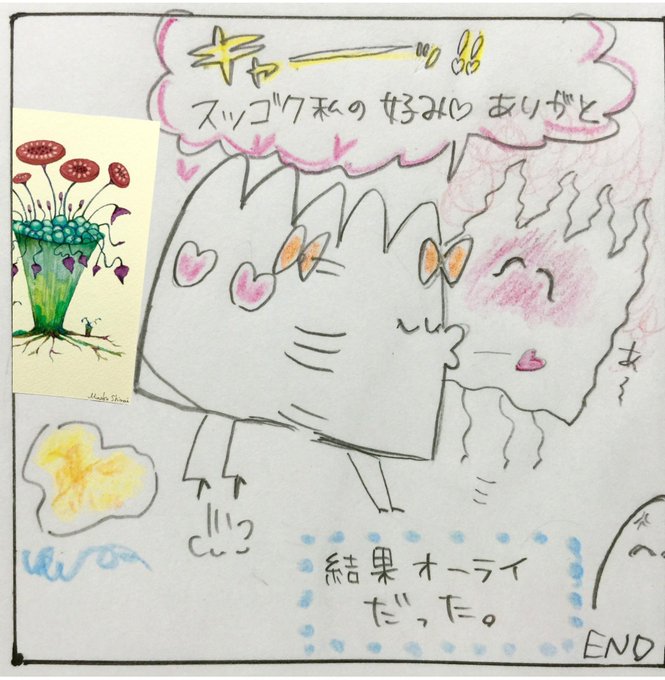 キャーーー!!
スッゴク私の好み♡ ありがと
あ〜
結果オーライ
だった。
END